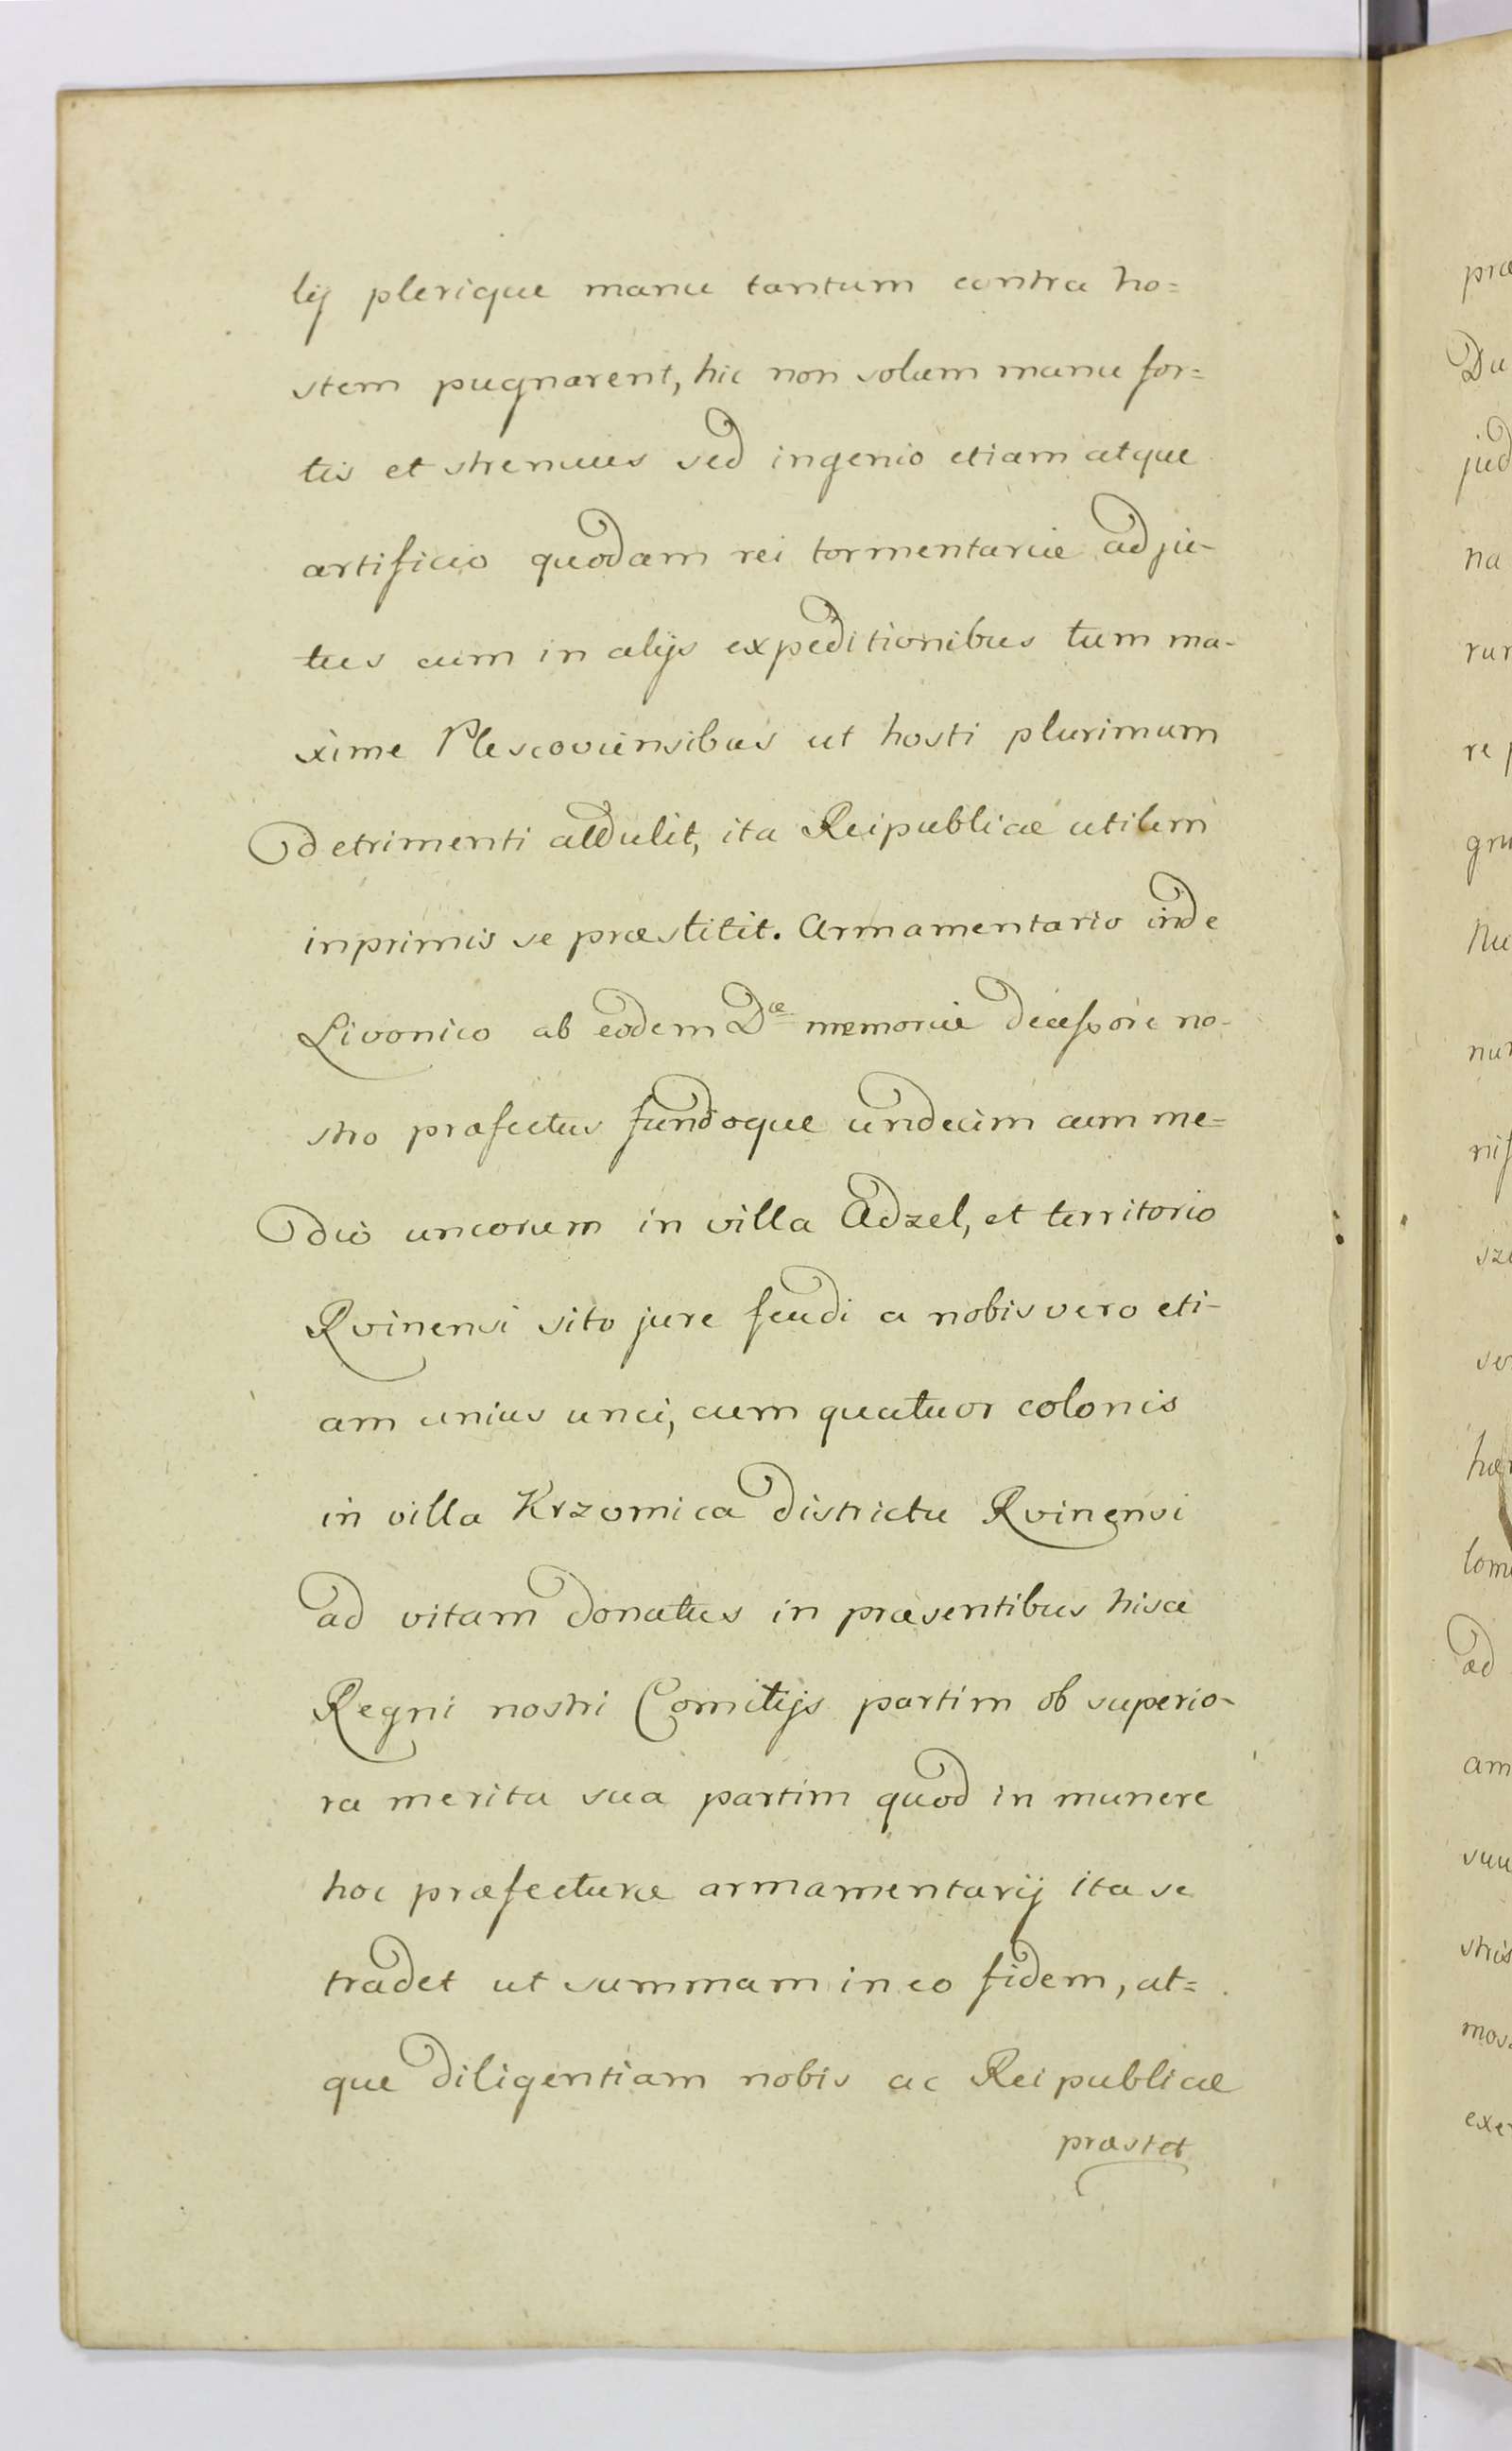 lij plerique manu tantum contra ho=
stem pugnarent, hic non solum manu for=
tis et strenuus sed ingenio etiam atque
artificio quodam rei tormentariæ adju-
tus cum in alijs expeditionibus tum ma-
xime Plescoviensibus ut hosti plurimum
detrimenti addulit, ita Reipublicæ utilem
inprimis se præstitit. Armamentario inde
Livonico ab eodem Dæ memoriæ decessore no-
stro præfectus fundoque undecim cum me=
dio uncorum in villa Adzel, et territorio
Rvinensi sito jure feudi a nobis vero eti-
am unius unci, cum quatuor colonis
in villa Krzomica districtu Rvinensi
ad vitam donatus in præsentibus hisce
Regni nostri Comitijs partim ob superio-
ra merita sua partim quod in munere
hoc præfecturæ armamentarij ita se
tradet ut summam in eo fidem, at=
que diligentiam nobis ac Reipublicæ
præstet
præ
Du
jud
na
rur
re
gru
nu
nun
nis
sze
se
hær
lom
ad
am
suu
stris
mos
exe